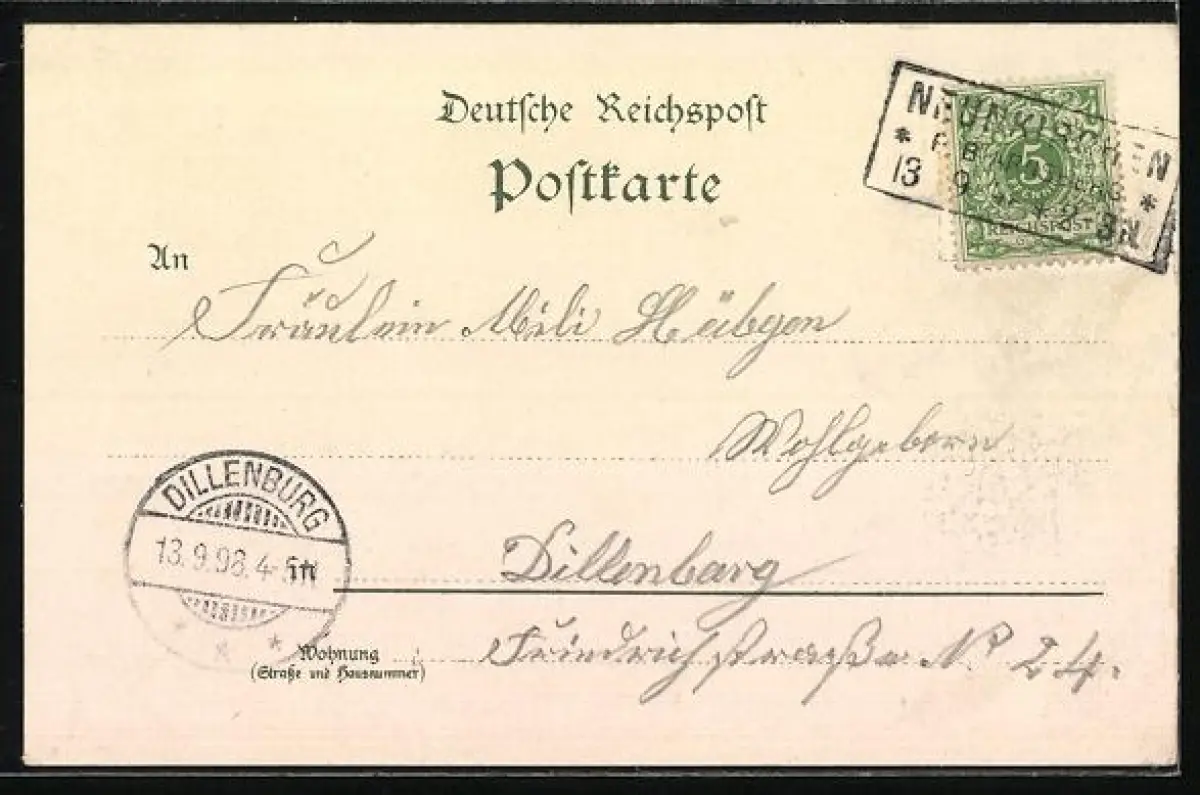 Deutsche Reichspost
Postkarte
NEUNKIRCHEN
* R.B. ARNSBERG *
13 9 2-3N
5
REICHSPOST
An
Fräulein Mili Hübgen
Wohlgeborn
DILLENBURG
13.9.98. 4-5N
in Dillenburg
Wohnung
(Straße und Hausnummer)
Friedrichstraße No 24.